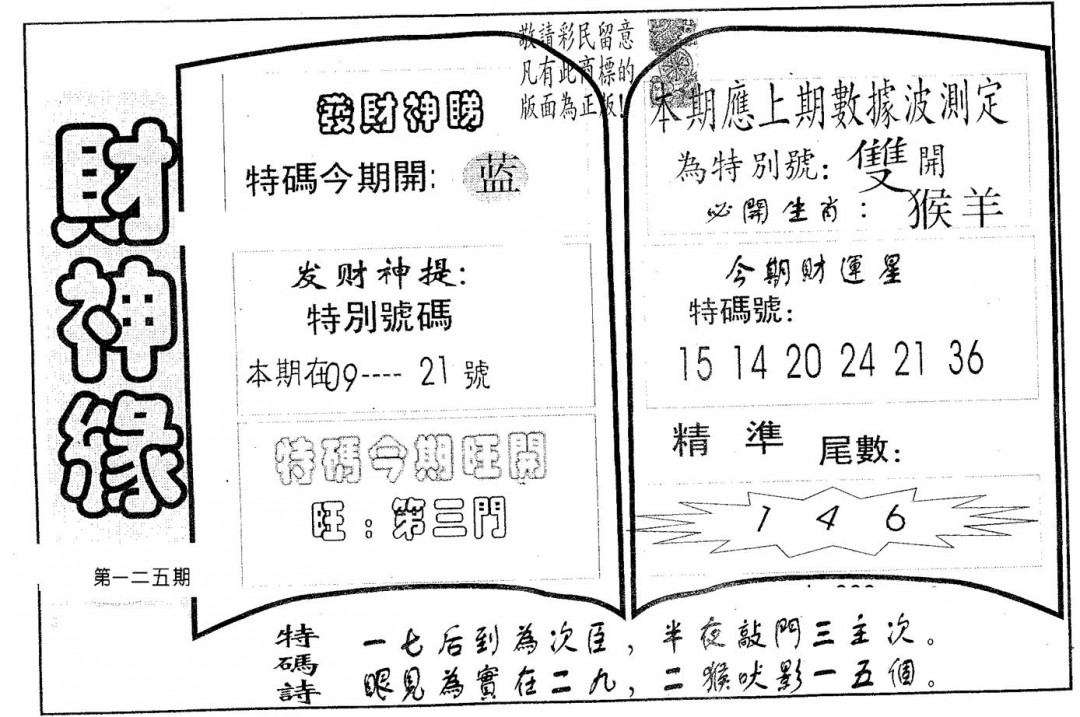 財神緣
第一二五期
敬請彩民留意
凡有此商標的
版面為正版!
發財神睇
特碼今期開: 蓝
发财神提:
特別號碼
本期在09---- 21 號
特碼今期旺開
旺:第三門
本期應上期數據波測定
為特別號: 雙開
必開生肖: 猴羊
今期財運星
特碼號:
15 14 20 24 21 36
精準 尾數:
1 4 6
特碼詩
一七后到為次臣,半夜敲門三主次。
眼見為實在二九,二猴吠影一五個。